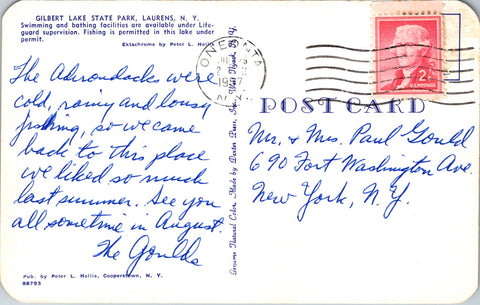 GILBERT LAKE STATE PARK, LAURENS, N. Y.
Swimming and bathing facilities are available under Life-
guard supervision. Fishing is permitted in this lake under
permit.
Ektachrome by Peter L. Hollis
The Adirondacks were
cold, rainy and lousy
fishing, so we came
back to this place
we liked so much
last summer. See you
all sometime in August.
The Goulds
Pub. by Peter L. Hollis, Cooperstown, N. Y.
88793
Genuine Natural Color. Made by Dexter Press, Inc., West Nyack, N. Y.
ONEONTA
1957
N.Y.
2¢
U.S. POSTAGE
POST CARD
Mr. & Mrs. Paul Gould
690 Fort Washington Ave.
New York, N.Y.